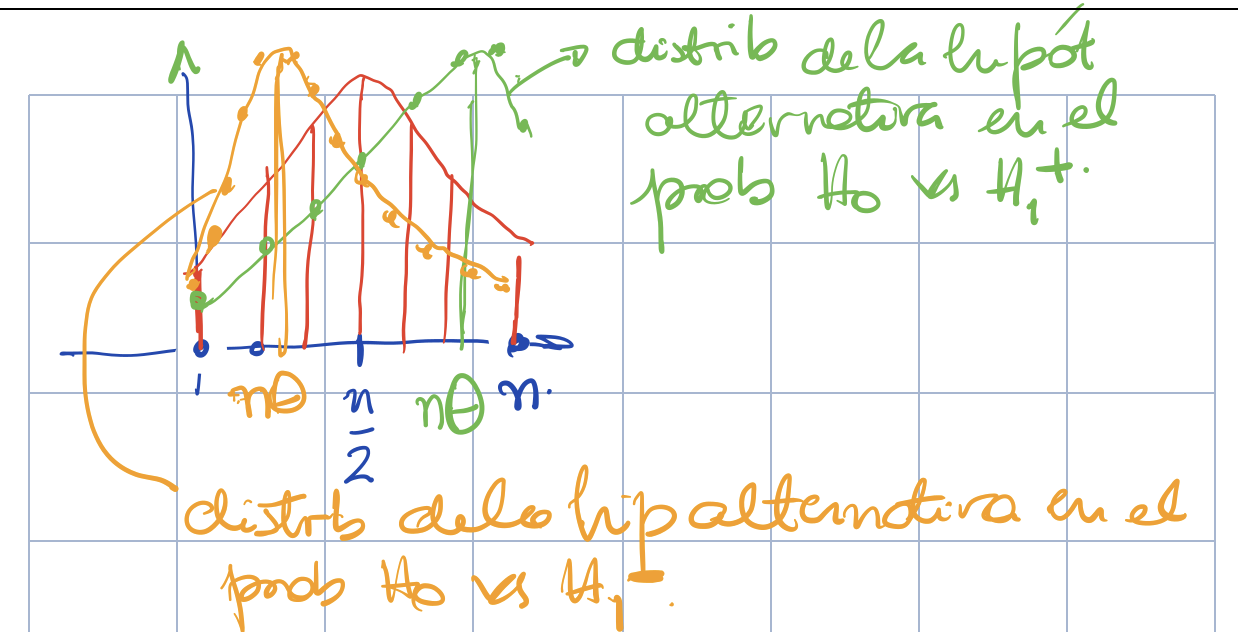 distrib de la hipót
alternativa en el
prob H₀ vs H₁⁺.
1 nθ n/2 nθ n.
distrib de la hip alternativa en el
prob H₀ vs H₁⁻.